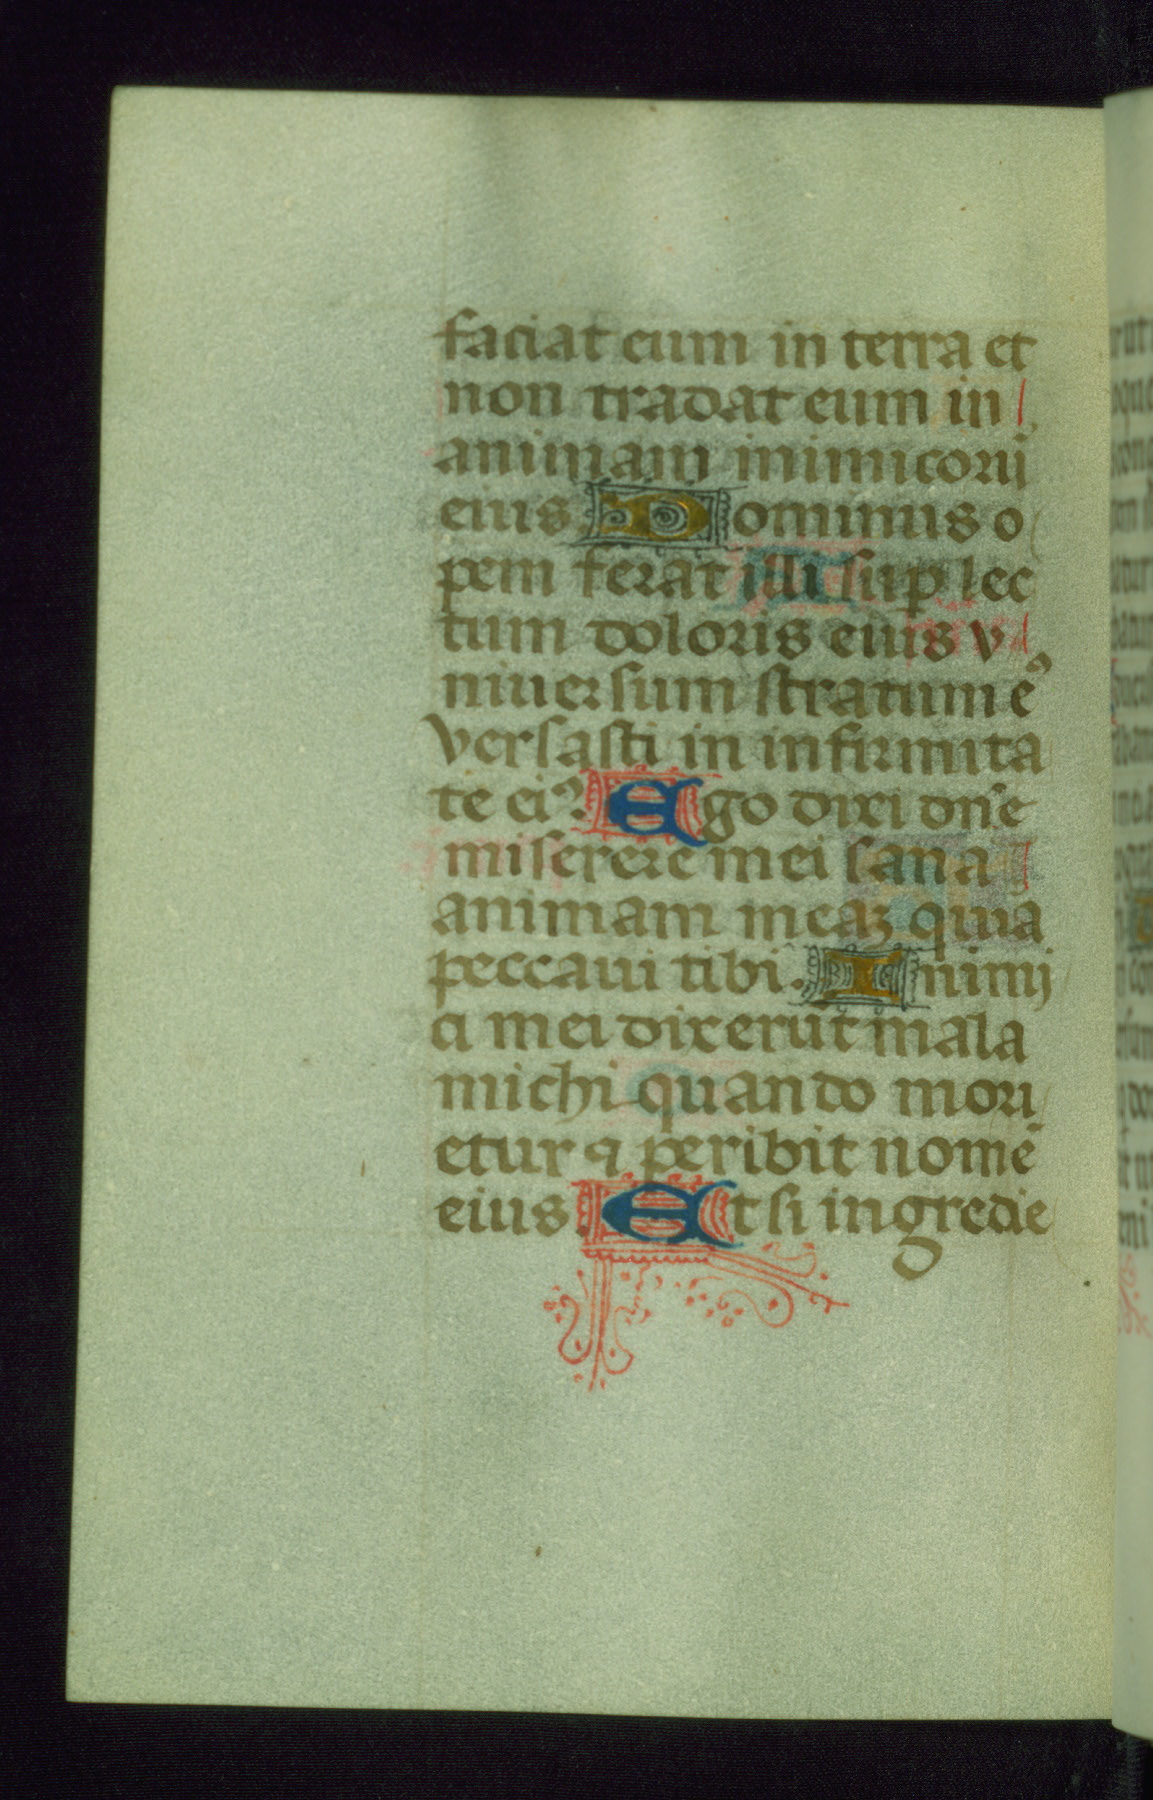 faciat eum in terra et
non tradat eum in
animam inimicoru
eius Dominus o
pem ferat illi sup lec
tum doloris eius v
niuersum stratum eꝰ
versasti in infirmita
te eiꝰ. Ego dixi dn̄e
miserere mei sana
animam meaz quia
peccaui tibi. Inimi
ci mei dixerūt mala
michi quando mori
etur ꝙ peribit nomē
eius. Et si ingredie